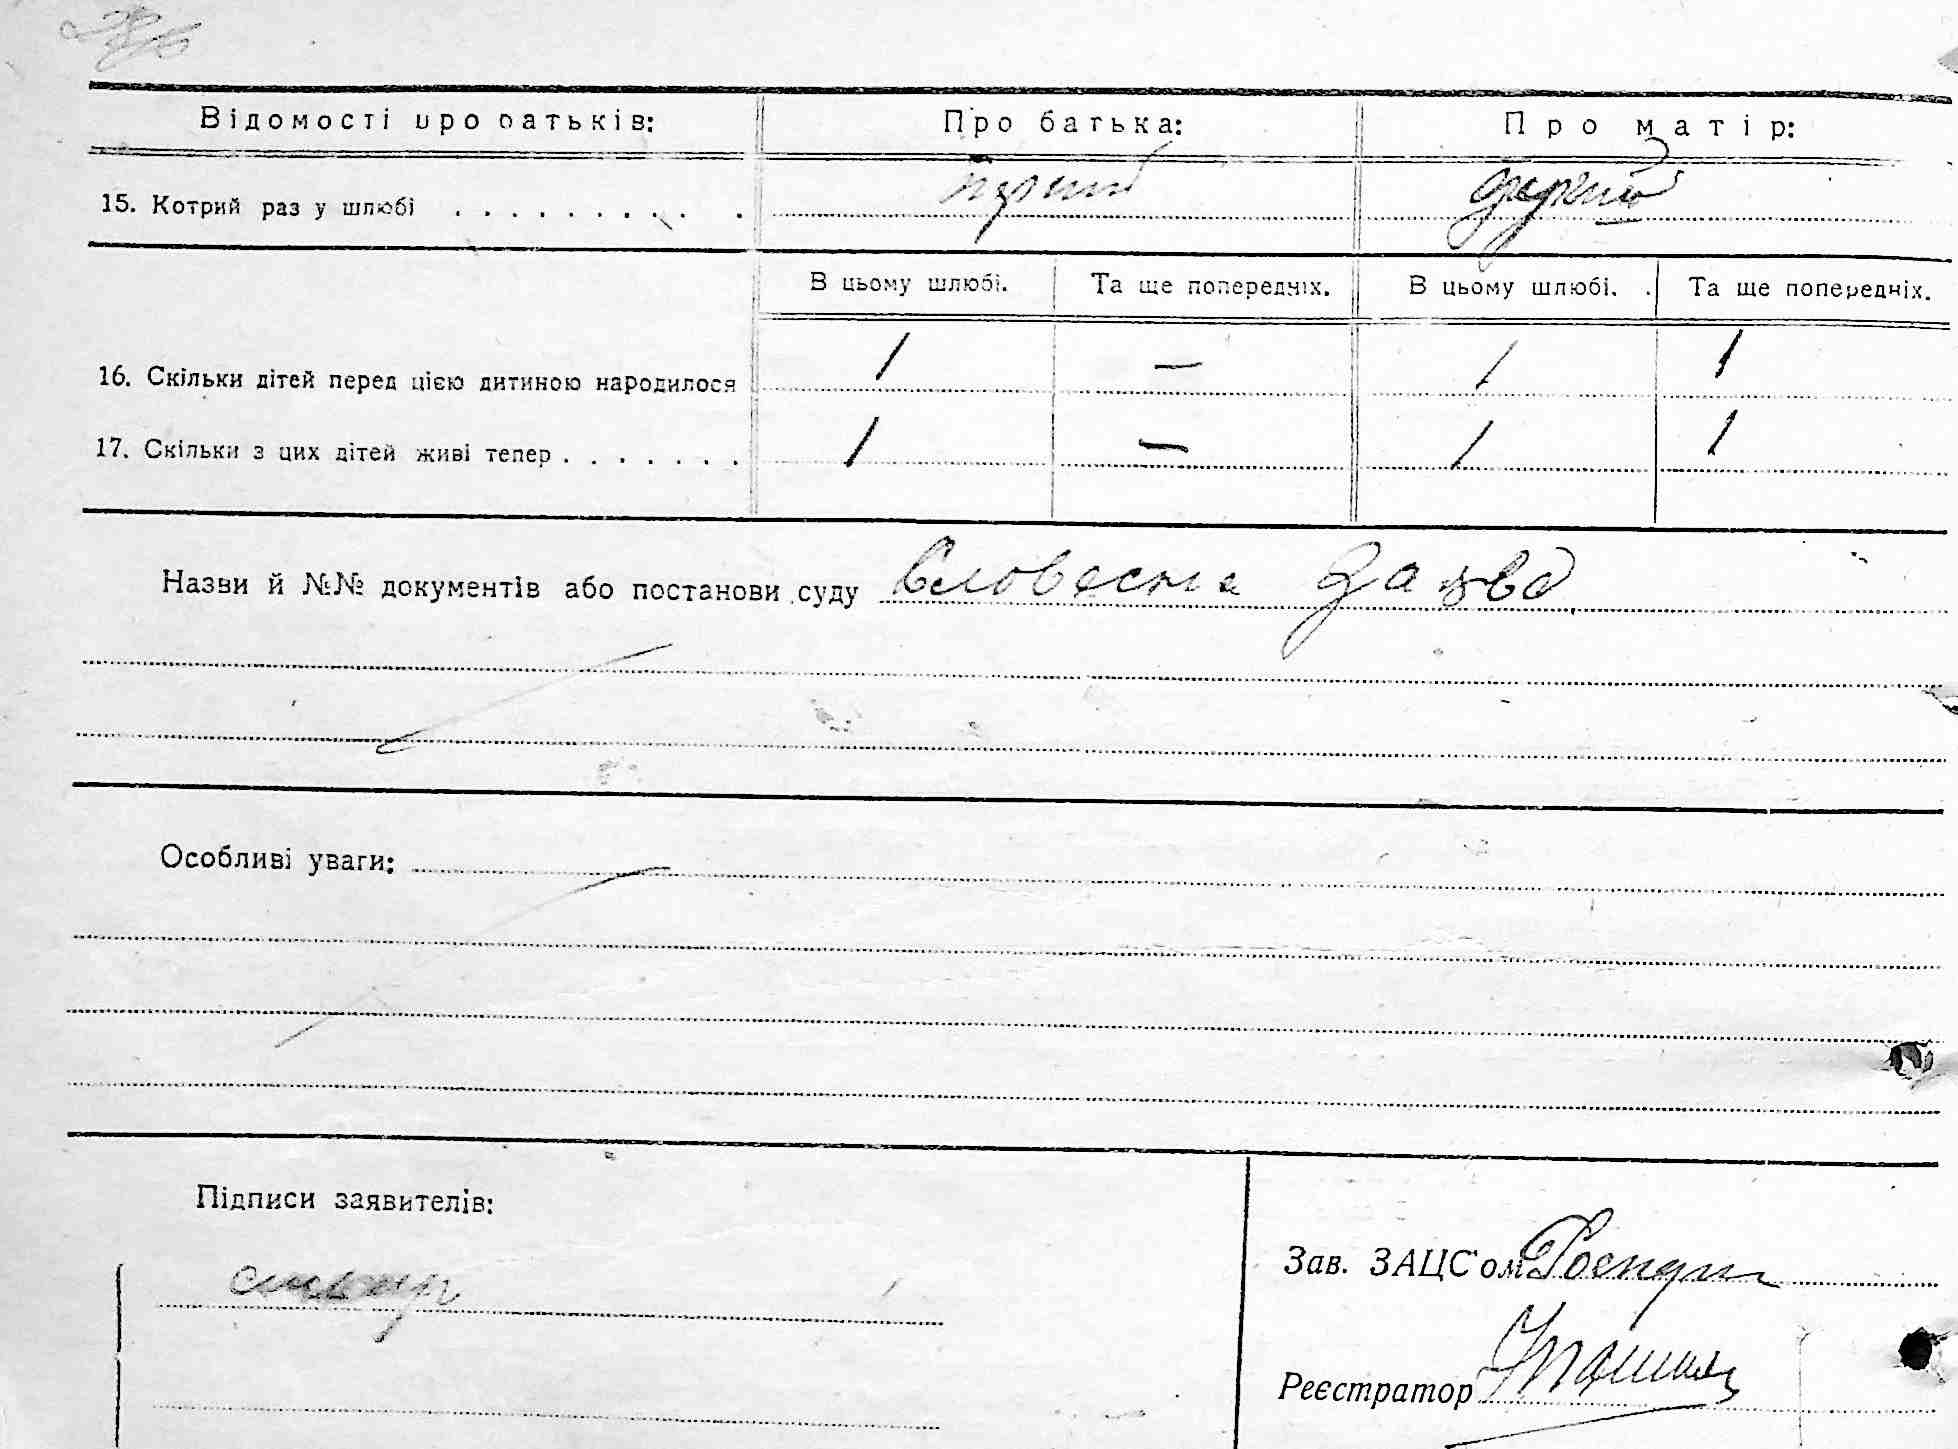 Відомості про батьків: Про батька: Про матір:
15. Котрий раз у шлюбі . . . . . . . . . . перший другий
В цьому шлюбі. Та ще попередніх. В цьому шлюбі. Та ще попередніх.
16. Скільки дітей перед цією дитиною народилося 1 — 1 1
17. Скільки з цих дітей живі тепер . . . . . . . 1 — 1 1
Назви й №№ документів або постанови суду Словесна заява
Особливі уваги:
Підписи заявителів:
Зав. ЗАЦС'ом
Реєстратор